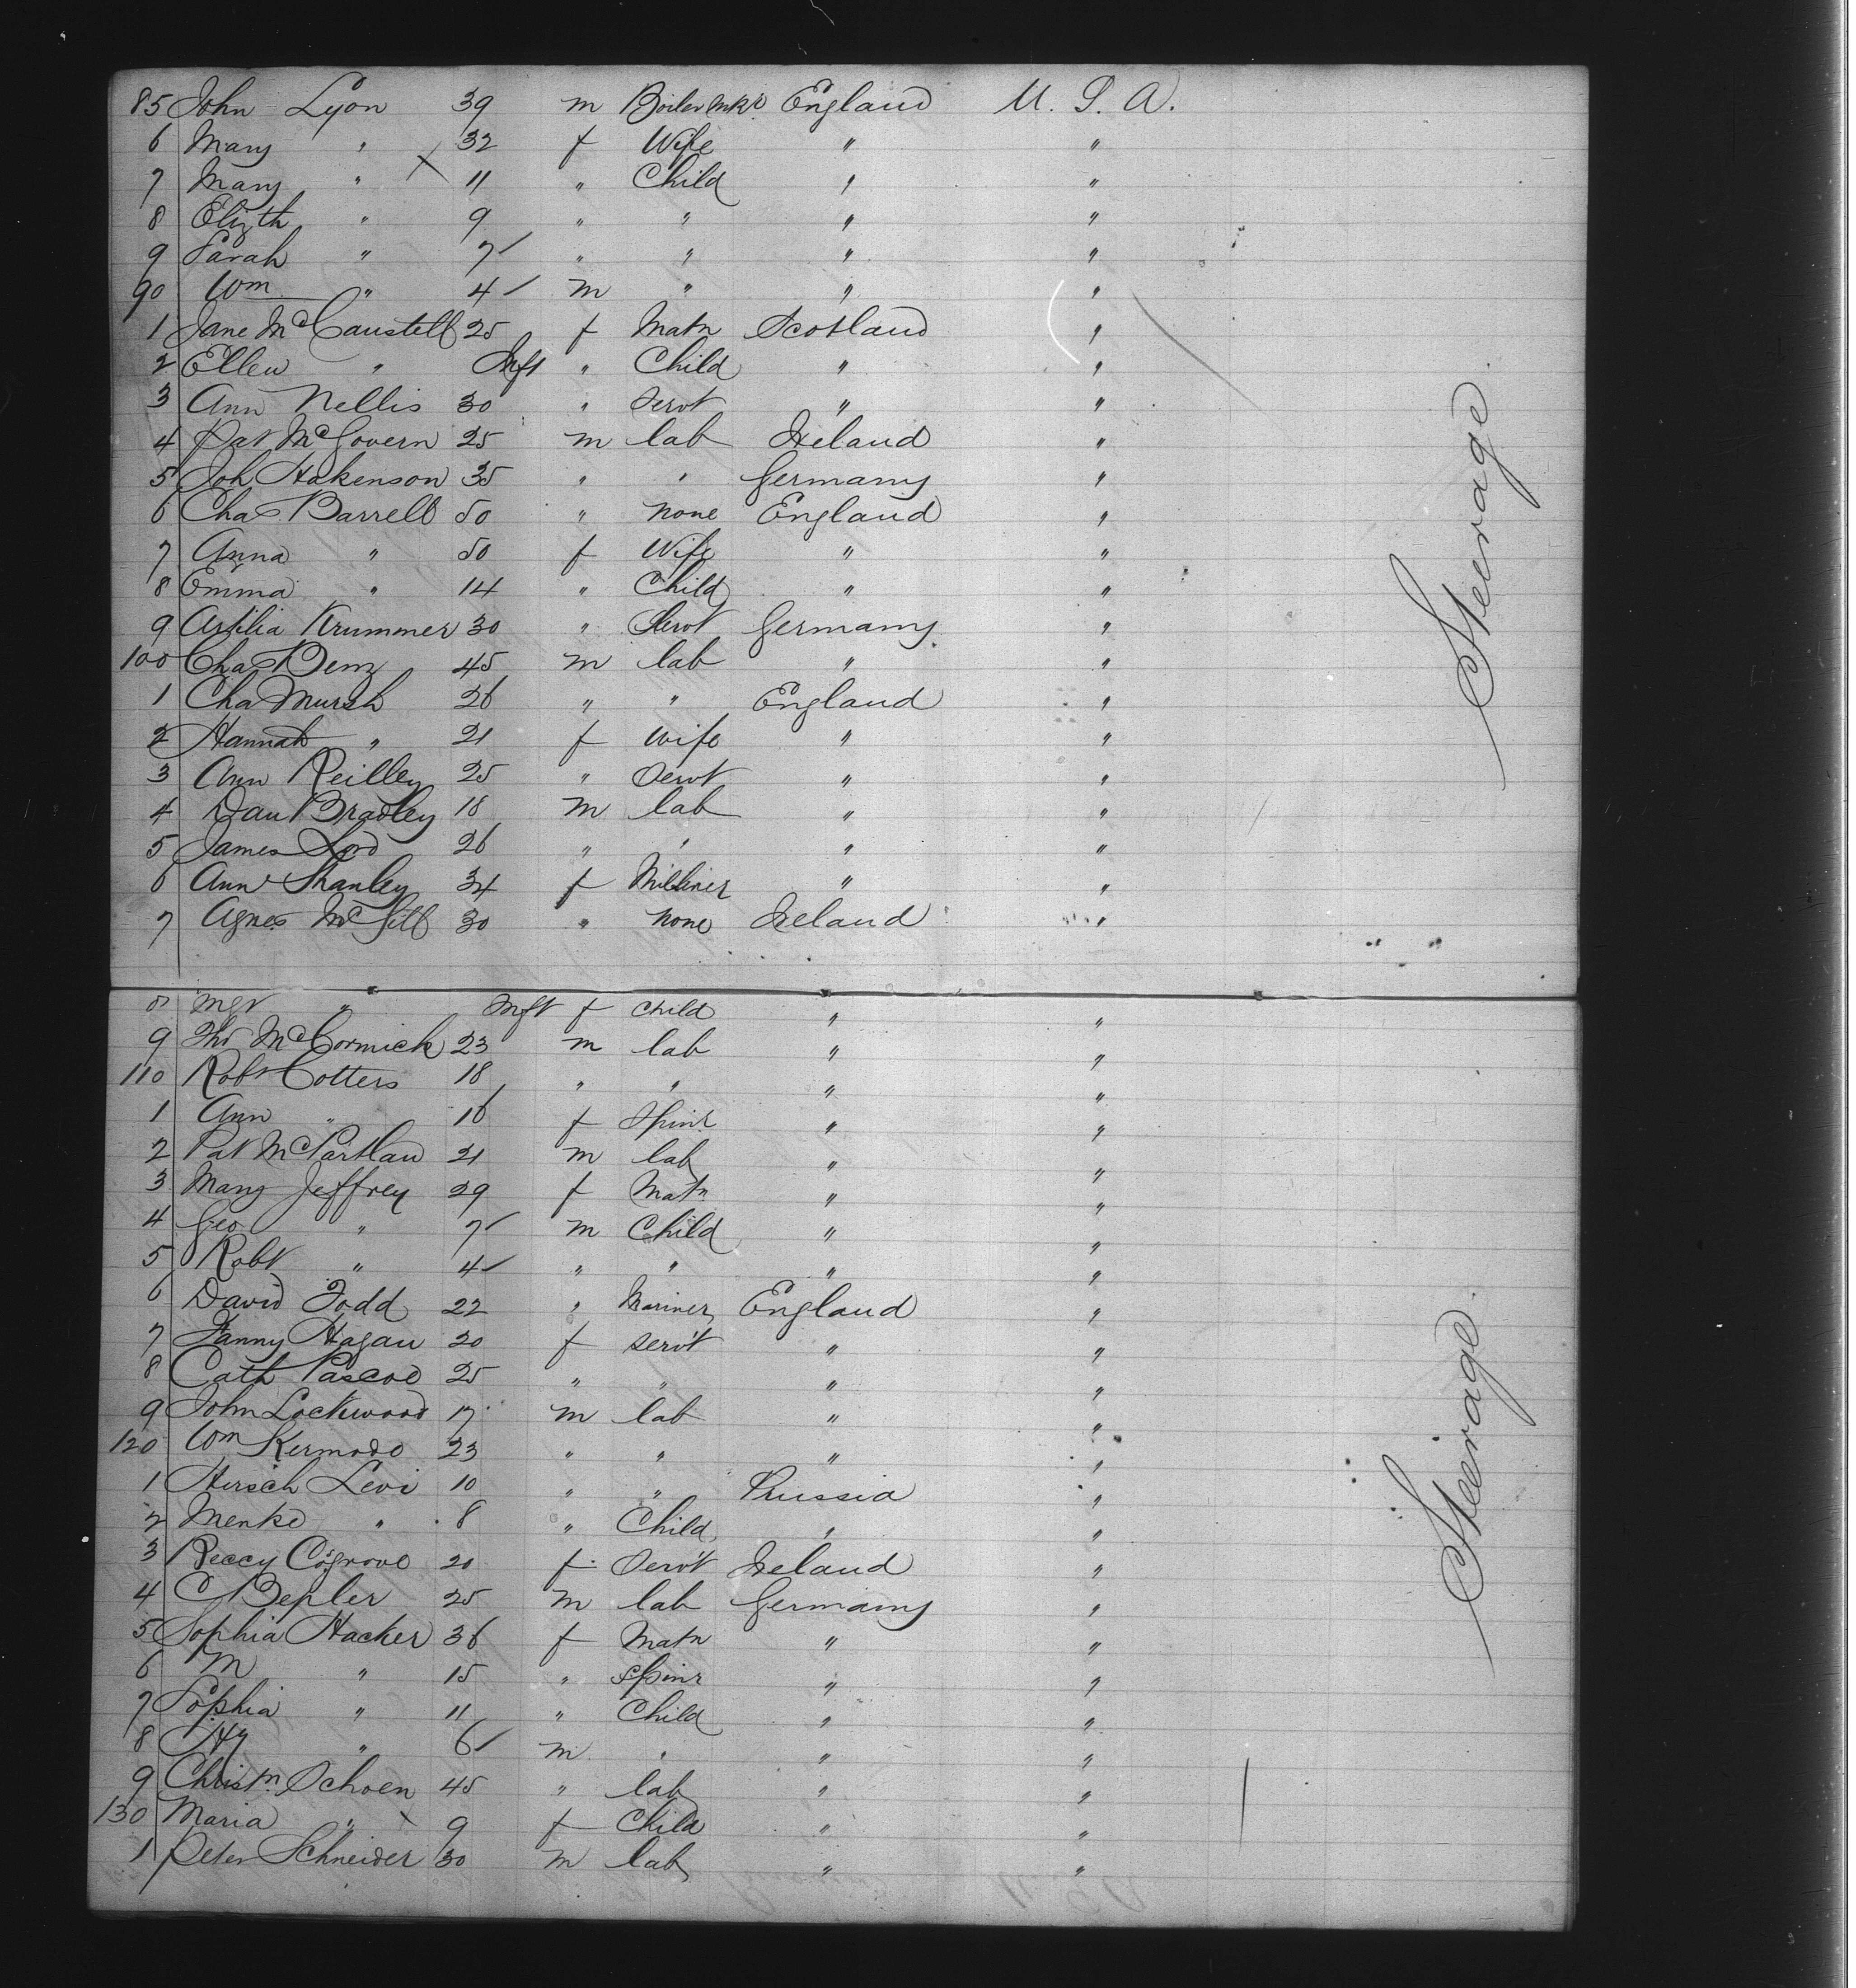 85 John Lyon 39 m Boiler mkr England U. S. A.
6 Mary " 32 f Wife " "
7 Mary " 11 " Child " "
8 Elizth " 9 " " " "
9 Sarah " 7 " " " "
90 Wm " 4 m " " "
1 Jane McCaustell 25 f Matn Scotland "
2 Ellen " Inft " Child " "
3 Ann Nellis 30 " Servt " "
4 Pat McGovern 25 m lab Ireland "
5 Joh Hakenson 35 " " Germany "
6 Chas Barrell 50 " none England "
7 Anna " 50 f Wife " "
8 Emma " 14 " Child " "
9 Krummer 30 " Servt Germany "
100 Chas Denz 45 m lab " "
1 Cha Mursh 26 " " England "
2 Hannah " 21 f Wife " "
3 Ann Reilley 25 " Servt " "
4 Dan Bradley 18 m lab " "
5 James Lord 26 " " " "
6 Ann Shanley 34 f Milliner " "
7 Agnes McGill 30 " none Ireland "
Steerage.
8 Mgt " Inft f Child " "
9 Thos McCormick 23 m lab " "
110 Robt Cotters 18 " " " "
1 Ann " 16 f Spinr " "
2 Pat McPartlan 21 m lab " "
3 Mary Jeffrey 29 f Matn " "
4 Geo " 7 m Child " "
5 Robt " 4 " " " "
6 David Todd 22 " Mariner England "
7 Fanny Hagan 20 f servt " "
8 Cath Pascoe 25 " " " "
9 John Lockwood 17 m lab " "
120 Wm Kermode 23 " " " "
1 Hirsch Levi 10 " " Prussia "
2 Menke " 8 " Child " "
3 Beccy Cosgrove 20 f Servt Ireland "
4 C Bepler 25 m lab Germany "
5 Sophia Hacker 36 f Matn " "
6 M " 15 " Spinr " "
7 Sophia " 11 " Child " "
8 Hy " 6 m " " "
9 Christn Schoen 45 " lab " "
130 Maria " 9 f Child " "
1 Peter Schneider 30 m lab " "
Steerage.